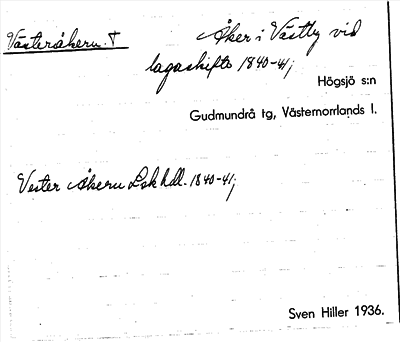 Västeråkern. † Åker i Västby vid
lagaskifte 1840-41;
Högsjö s:n
Gudmundrå tg, Västernorrlands l.
Vester Åkern Lsk hdl. 1840-41;
Sven Hiller 1936.